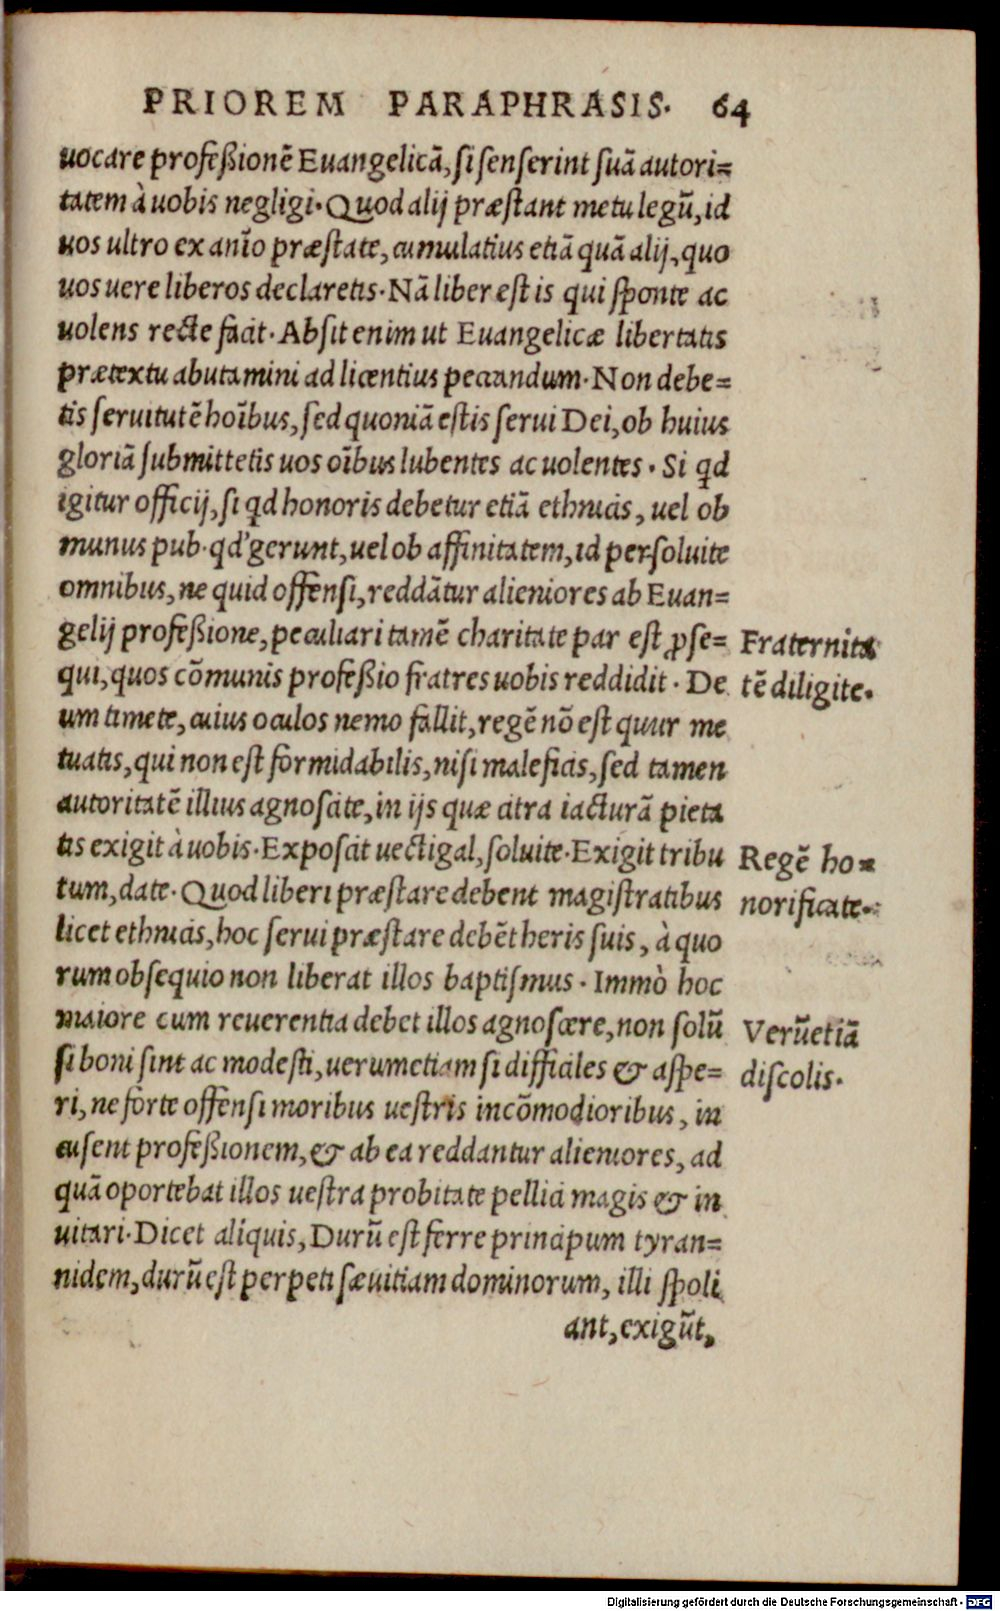 PRIOREM PARAPHRASIS. 64
uocare profeßionē Euangelicā, si senserint suā autori=
tatem à uobis negligi. Quod alij præstant metu legū, id
uos ultro ex anīo præstate, cumulatius etiā quā alij, quo
uos uere liberos declaretis. Nā liber est is qui sponte ac
uolens recte facit. Absit enim ut Euangelicæ libertatis
prætextu abutamini ad licentius peccandum. Non debe=
tis seruitutē hoībus, sed quoniā estis serui Dei, ob huius
gloriā submittetis uos oībus lubentes ac uolentes. Si qd
igitur officij, si qd honoris debetur etiā ethnicis, uel ob
munus pub. qd' gerunt, uel ob affinitatem, id persoluite
omnibus, ne quid offensi, reddātur alieniores ab Euan=
gelij profeßione, peculiari tamē charitate par est ꝓse=
qui, quos cōmunis profeßio fratres uobis reddidit. De
um timete, cuius oculos nemo fallit, regē nō est quur me
tuatis, qui non est formidabilis, nisi maleficis, sed tamen
autoritatē illius agnoscite, in ijs quæ citra iacturā pieta
tis exigit à uobis. Exposcit uectigal, soluite. Exigit tribu
tum, date. Quod liberi præstare debent magistratibus
licet ethnicis, hoc serui præstare debēt heris suis, à quo
rum obsequio non liberat illos baptismus. Immò hoc
maiore cum reuerentia debet illos agnoscere, non solū
si boni sint ac modesti, uerumetiam si difficiles & aspe=
ri, ne forte offensi moribus uestris incōmodioribus, in
cusent profeßionem, & ab ea reddantur alieniores, ad
quā oportebat illos uestra probitate pellici magis & in
uitari. Dicet aliquis, Durū est ferre principum tyran=
nidem, durū est perpeti sæuitiam dominorum, illi spoli
ant, exigūt,
Fraternita
tē diligite.
Regē ho=
norificate.
Verūetiā
discolis.
Digitalisierung gefördert durch die Deutsche Forschungsgemeinschaft - DFG